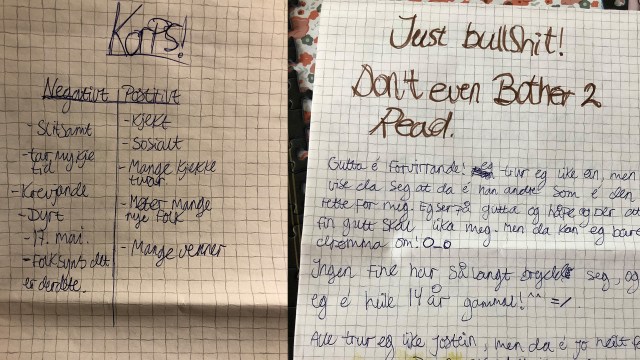 Korps!
Negativt
- Slitsamt
- tar mykje
tid
- Krevjande
- Dyrt
- 17. mai.
- Folk syns det
er
Positivt
- Kjekt
- Sosialt
- Mange kjekke
turar
- Møter mange
nye folk
- Mange venner
Just bullshit!
Don't even Bother 2
Read.
Gutta é forvirrande! trur eg like ein, men
vise da seg at da é han andre som é den
rette for meg. Eg ser på gutta og håpe og ber at
fin gutt skal lika meg. Men da kan eg bare
drømma om! O_o
Ingen fine har så langt seg, og
eg é heile 14 år gammal! ^^ =/
Alle trur eg like Jostein, men da é jo heilt